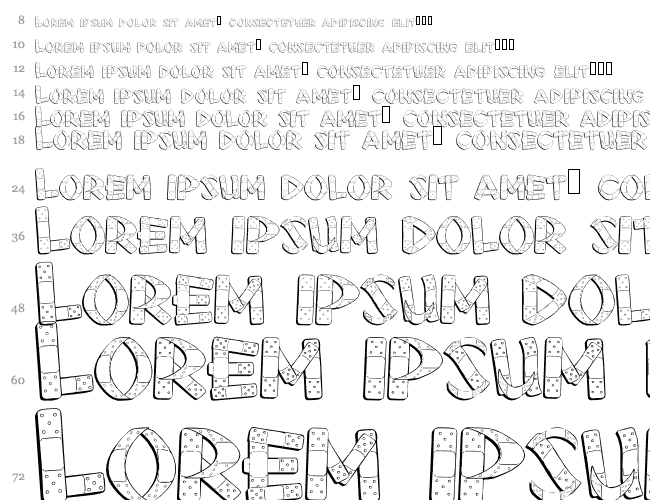 8 LOREM IPSUM DOLOR SIT AMET▯ CONSECTETUER ADIPISCING ELIT▯▯▯
10 LOREM IPSUM DOLOR SIT AMET▯ CONSECTETUER ADIPISCING ELIT▯▯▯
12 LOREM IPSUM DOLOR SIT AMET▯ CONSECTETUER ADIPISCING ELIT▯▯▯
14 LOREM IPSUM DOLOR SIT AMET▯ CONSECTETUER ADIPISCING
16 LOREM IPSUM DOLOR SIT AMET▯ CONSECTETUER ADIPIS
18 LOREM IPSUM DOLOR SIT AMET▯ CONSECTETUER
24 LOREM IPSUM DOLOR SIT AMET▯ CO
36 LOREM IPSUM DOLOR SIT
48 LOREM IPSUM DOL
60 LOREM IPSUM
72 LOREM IPSU